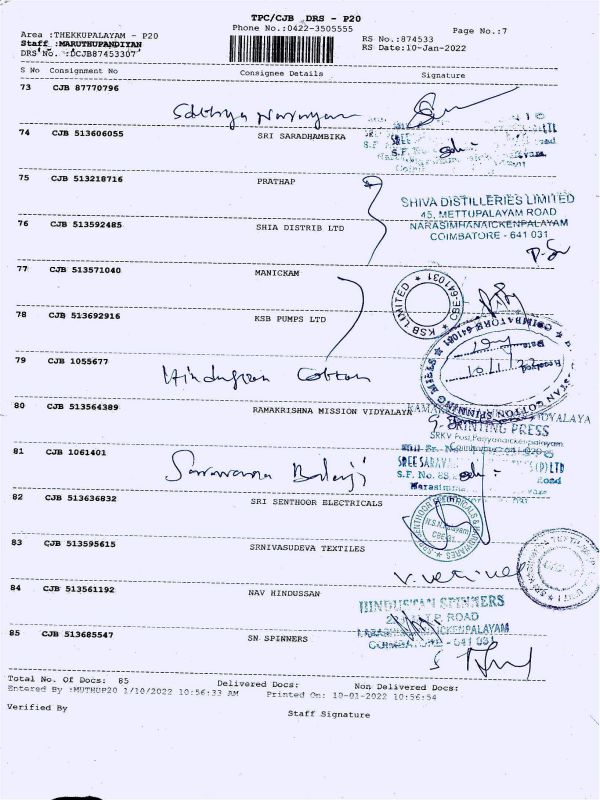 TPC/CJB DRS - P20
Phone No.:0422-3505555
Page No.:7
Area :THEKKUPALAYAM - P20
Staff :MARUTHUPANDIYAN
DRS No. :DCJB87453307
RS No.:874533
RS Date:10-Jan-2022
S No Consignment No Consignee Details Signature
73 CJB 87770796
Sathya Narayan
74 CJB 513606055 SRI SARADHAMBIKA
75 CJB 513218716 PRATHAP
SHIVA DISTILLERIES LIMITED
45, METTUPALAYAM ROAD
NARASIMHANAICKENPALAYAM
COIMBATORE - 641 031
76 CJB 513592485 SHIA DISTRIB LTD
77 CJB 513571040 MANICKAM
KSB LIMITED ★ CBE-641031 ★
78 CJB 513692916 KSB PUMPS LTD
79 CJB 1055677
Hindustan Cotton
COIMBATORE-641031 ★ COTTON SPINNING MILLS ★
Received
Date
10/1/22
80 CJB 513564389 RAMAKRISHNA MISSION VIDYALAYA
PRINTING PRESS
SRKV Post, Periyanaickenpalayam
81 CJB 1061401
Saravana Balaji
SREE (P) LTD
S.F. No. Road
82 CJB 513636832 SRI SENTHOOR ELECTRICALS
83 CJB 513595615 SRNIVASUDEVA TEXTILES
V. Vetrivel
84 CJB 513561192 NAV HINDUSSAN
HINDUSTAN SPINNERS
ROAD
NARASIMHANAICKENPALAYAM
COIMBATORE - 641 031
85 CJB 513685547 SN SPINNERS
Total No. Of Docs: 85 Delivered Docs: Non Delivered Docs:
Entered By :MUTHUP20 1/10/2022 10:56:33 AM Printed On: 10-01-2022 10:56:54
Verified By Staff Signature